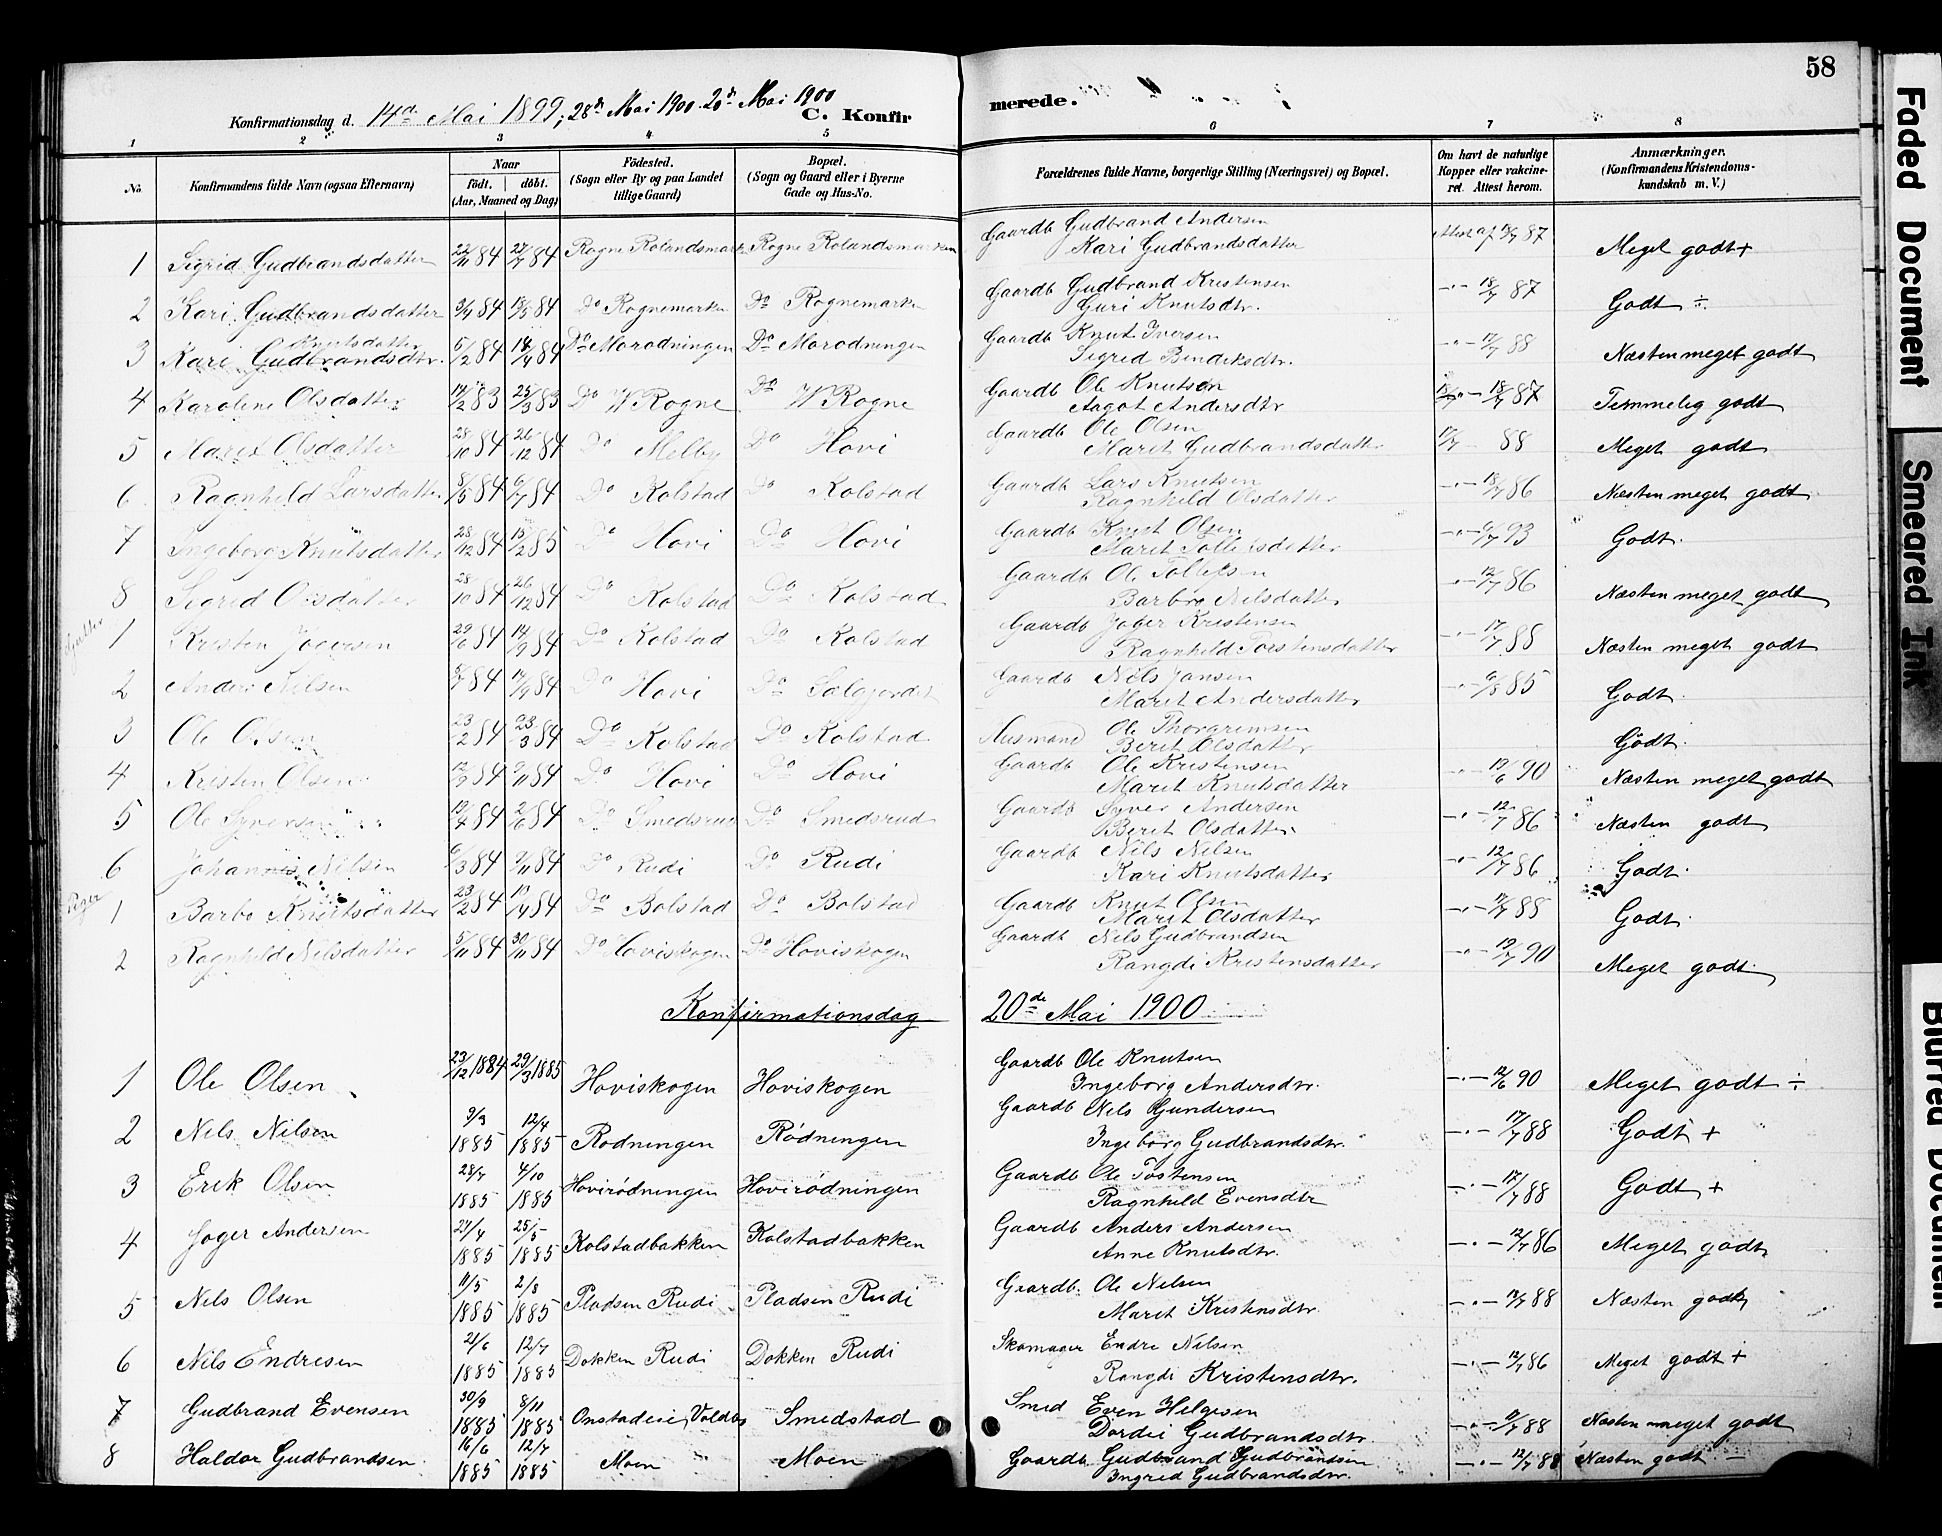 58
Konfirmationsdag d. 14de Mai 1899, 28de Mai 1900. 20de Mai 1900
C. Konfirmerede.
1 2 3 4 5 6 7 8
No. Konfirmandens fulde Navn (ogsaa Efternavn) Naar født. døbt. (Aar, Maaned og Dag) Fødested. (Sogn eller By og paa Landet tillige Gaard) Bopæl. (Sogn og Gaard eller i Byerne Gade og Hus-No. Forældrenes fulde Navne, borgerlige Stilling (Næringsvei) og Bopæl. Om havt de naturlige Kopper eller vakcineret. Attest herom. Anmærkninger. (Konfirmandens Kristendomskundskab m. V.)
1 Sigrid Gudbrandsdatter 22/11 84 27/7 84 Rogne Rolandsmarken Rogne Rolandsmarken Gaardb Gudbrand Andersen Kari Gudbrandsdatter Attest af 87 Meget godt +
2 Kari Gudbrandsdatter 9/4 84 18/5 84 Do Rognemarken Do Rognemarken Gaardb Gudbrand Kristensen Guri Knutsdtr. 18/7 87 Godt ÷
3 Kari Gudbrandsdtr. Knutsdatter 6/2 84 14/4 84 Do Morodningen Do Morodningen Gaardb Knut Iversen Sigrid Bendiksdtr. 17/7 88 Næsten meget godt
4 Karoline Olsdatter 14/2 83 25/3 83 Do W Rogne Do W Rogne Gaardb Ole Knutsen Aagot Andersdtr 18/7 87 Temmelig godt
5 Marit Olsdatter 28/10 84 26/12 84 Do Melby Do Hovi Gaardb Ole Olsen Marit Gudbrandsdatter 88 Meget godt
6 Ragnhild Larsdatter 8/5 84 6/7 84 Do Kolstad Do Kolstad Gaardb Lars Knutsen Ragnhild Olsdatter 18/7 86 Næsten meget godt
7 Ingeborg Knutsdatter 28/12 84 15/2 85 Do Hovi Do Hovi Gaardb Knut Olsen Marit Tollefsdatter 6/7 93 Godt.
8 Sigrid Olsdatter 28/10 84 26/12 84 Do Kolstad Do Kolstad Gaardb Ole Tollefsen Barbro Nilsdatter 12/7 86 Næsten meget godt
Gutter
1 Kristen Jogersen 29/6 84 14/9 84 Do Kolstad Do Kolstad Gaardb Joger Kristensen Ragnhild Torstensdatter 17/7 88 Næsten meget godt
2 Anders Nilsen 5/7 84 14/9 84 Do Hovi Do Solgjordet Gaardb Nils Jansen Marit Andersdatter 6/8 85 Godt.
3 Ole Olsen 23/2 84 23/3 84 Do Kolstad Do Kolstad Husmand Ole Thorgrimsen Berit Olsdatter Godt.
4 Kristen Olsen 12/9 84 9/11 84 Do Hovi Do Hovi Gaardb Ole Kristensen Marit Knutsdatter 19/6 90 Næsten meget godt
5 Ole Syversen 19/4 84 2/6 84 Do Smedsrud Do Smedsrud Gaardb Syver Andersen Berit Olsdatter 12/7 86 Næsten godt
6 Johannes Nilsen 6/3 84 9/11 84 Do Rudi Do Rudi Gaardb Nils Nilsen Kari Knutsdatter 12/7 86 Godt.
Piger
1 Barbo Knutsdatter 23/2 84 19/4 84 Do Bolstad Do Bolstad Gaardb Knut Olsen Marit Olsdatter 17/7 88 Godt.
2 Ragnhild Nilsdatter 5/11 84 30/11 84 Do Hoviskogen Do Hoviskogen Gaardb Nils Gudbrandsen Rangdi Kristensdatter 19/7 90 Meget godt
Konfirmationsdag 20de Mai 1900
1 Ole Olsen 23/12 1884 29/3 1885 Hoviskogen Hoviskogen Gaardb Ole Knutsen Ingeborg Andersdtr. 12/6 90 Meget godt ÷
2 Nils Nilsen 9/3 1885 12/4 1885 Rodningen Rødningen Gaardb Nils Gundersen Ingeborg Gudbrandsdtr. 17/7 88 Godt +
3 Erik Olsen 28/7 1885 4/10 1885 Hovirødningen Hovirødningen Gaardb Ole Tostensen Ragnhild Evensdtr 17/7 88 Godt +
4 Joger Andersen 21/4 1885 25/5 1885 Kolstadbakken Kolstadbakken Gaardb Anders Andersen Anne Knutsdtr. 12/7 86 Meget godt
5 Nils Olsen 11/5 1885 2/8 1885 Pladsen Rudi Pladsen Rudi Gaardb. Ole Nilsen Marit Kristensdtr. 17/7 88 Næsten godt
6 Nils Endresen 21/6 1885 12/7 1885 Dokken Rudi Dokken Rudi Skomager Endre Nilsen Rangdi Kristensdtr. 12/7 86 Meget godt +
7 Gudbrand Evensen 30/9 1885 8/11 1885 Onstadeie, Voldbo Smedstad Smed Even Helgesen Dordei Gudbrandsdtr. 88 Næsten meget godt
8 Haldor Gudbrandsen 16/6 1885 12/7 1885 Moen Moen Gaardb Gudbrand Gudbrandsen Ingrid Gudbrandsdtr. 12/7 88 Næsten godt –
Faded Document
Smeared Ink
Blurred Document